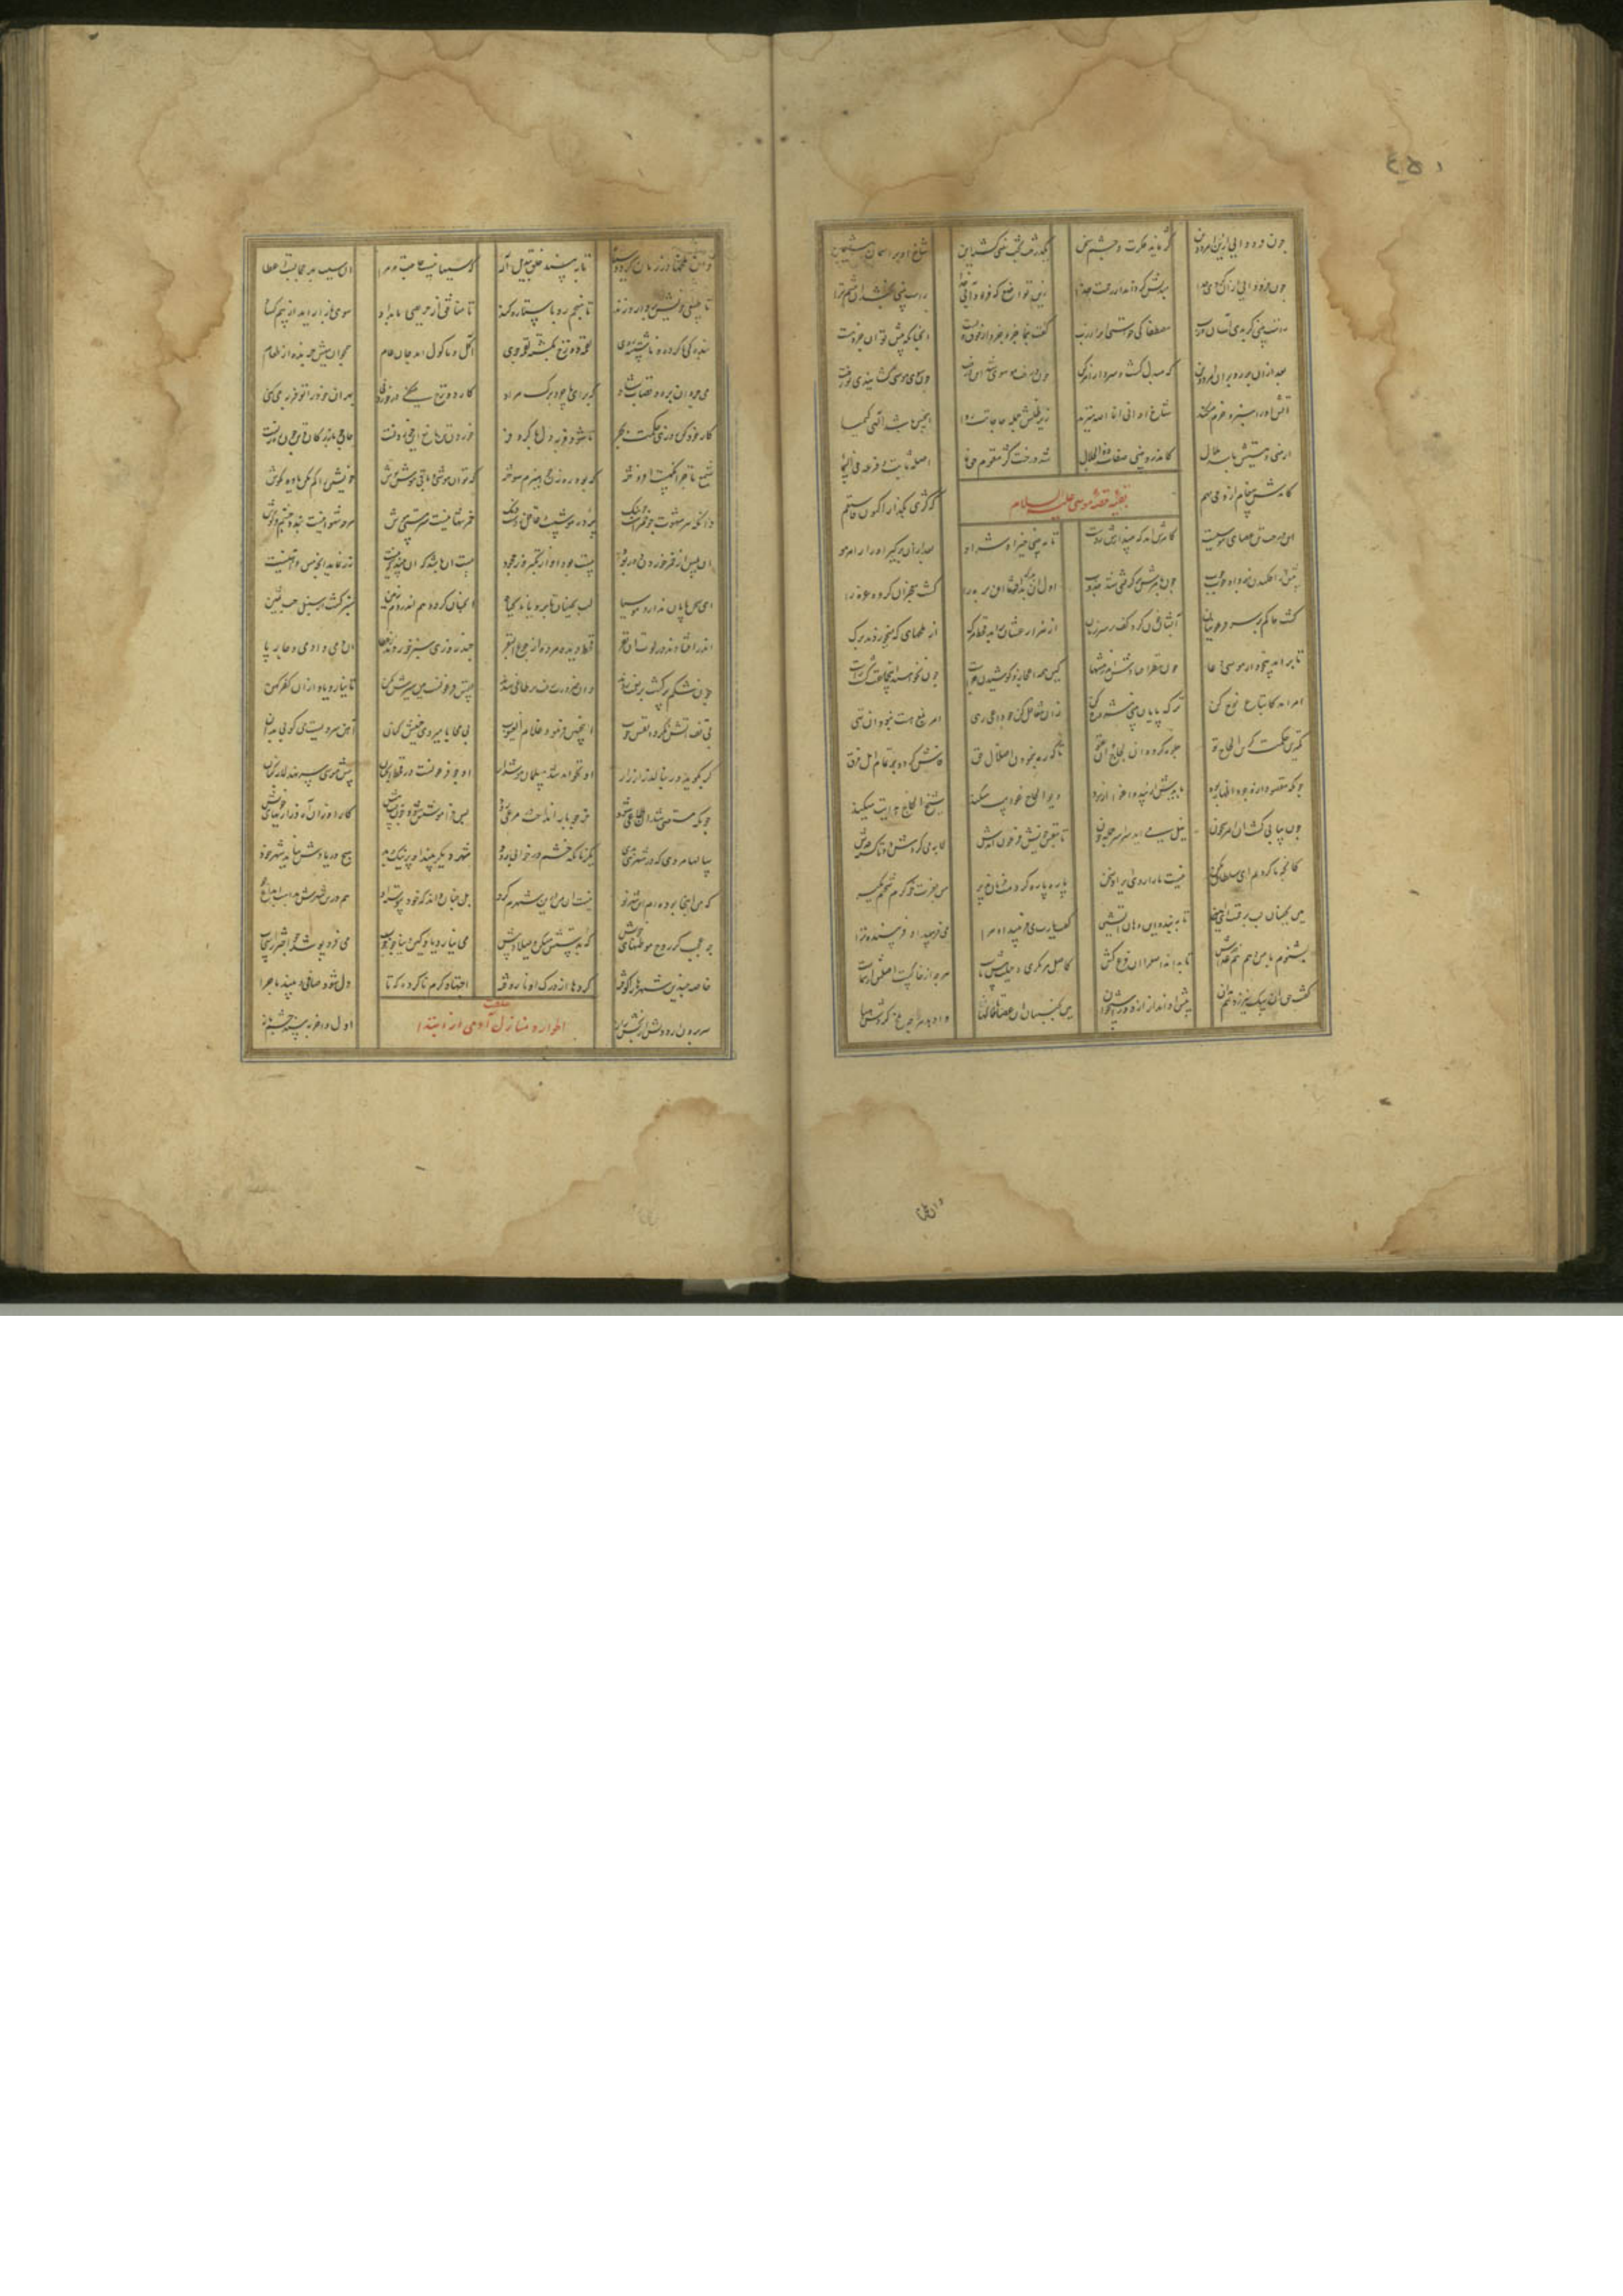 چون فرود آیی ازین امرودبن کژ نماند فکرت و چشم سخن یک درخت بخت بینی گشته این شاخ او بر آسمان هفتمین
چون فرود آیی ازان گردی جدا مبدلش گرداند از رحمت خدا زین تواضع که فرود آیی خدا راست بینی بخشد آن چشم ترا
راست بینی گر بدی آسان مصطفی کی خواستی از رب گفت بنما جزو جزو از فوق و پست آنچنانکه پیش تو آن جزو هست
بعد ازان بر رو بر آن امرودبن که مبدل گشت و سبز از امر کن چون درخت موسوی شد این درخت چون سوی موسی کشانیدی تو رخت
آتش او را سبز و خرم میکند شاخ او انی انا الله میزند زیر ظلش جمله حاجاتت روا اینچنین باشد الهی کیمیا
آن منی و هستیش باشد حلال که درو بینی صفات ذوالجلال شد درخت کژ مقوم حق نما اصله ثابت و فرعه فی السما
بقیه قصه موسی علیه السلام
کامدش پیغام از وحی مهم که کژی بگذار اکنون فاستقم
این درخت تن عصای موسیست کامرش آمد که بیندازش ز دست تا ببینی خیر او و شر او بعد ازان برگیر او را ز امر هو
پیش از افکندن نبود او غیر چوب چون بامرش برگرفتی گشت خوب اول او بد برگ افشان بره را گشت معجز آن گروه غره را
گشت حاکم بر سر فرعونیان آبشان خون کرد و کف بر سر زنان از مزارعشان برآمد قحط و مرگ از ملخهایی که میخوردند برگ
تا برآمد بیخود از موسی دعا چون نظر افتادش اندر منتها کین همه اعجاز و کوشیدن چراست چون نخواهند این جماعت گشت راست
امر آمد کاتباع نوح کن ترک پایان بینی مشروح کن زان تغافل کن چو داعی رهی امر بلغ هست نبود آن تهی
کمترین حکمت کزین الحاح تو جلوه گردد آن لجاج و آن عتو تا که ره بنمودن و اضلال حق فاش گردد بر همه اهل فرق
چونکه مقصود از وجود اظهار بود بایدش از پند و اغوا آزمود دیو الحاح غوایت میکند شیخ الحاح هدایت میکند
چون پیاپی گشت آن امر شجون نیل می آمد سراسر جمله خون تا بنفس خویش فرعون آمدش لابه می کردش دو تا گشته قدش
کانچه ما کردیم ای سلطان مکن نیست ما را روی ایراد سخن پاره پاره گردمت فرمان پذیر من بعزت خوگرم سختم مگیر
هین بجنبان لب برحمت ای امین تا ببندد این دهان آتشین گفت یا رب می فریبد او مرا می فریبد او فریبنده ترا
بشنوم یا من دهم هم خدعه اش تا بداند اصل را آن فرع کش کاصل هر مکری و حیلت پیش ماست هر چه از خاکست اصلش از سماست
گفت حق آن سگ نیرزد هم بآن پیش او انداز از دور استخوان هین بجنبان آن عصا تا خاکها وا دهد هر چه ملخ کردش فنا
وان ملخها در زمان گردد سیاه تا ببیند خلق تبدیل اله که سببها نیست حاجت مر مرا آن سبب بهر حجابست و غطا
تا طبیعی خویش بر دارو زند تا منجم رو باستاره کند تا منافق از حریصی بامداد سوی بازار آید از بیم کساد
بندگی ناکرده و ناشسته روی لقمه دوزخ بگشته لقمه جوی آکل و ماکول آمد جان عام همچو آن میش چرنده از طعام
می چرد آن بره و قصاب شاد که برای ما چرد برگ مراد کار دوزخ میکنی در خوردنی بهر آن خود را تو فربه میکنی
کار خود کن روزی حکمت بچر تا شود فربه دل با کر و فر خوردن تن مانع این خوردنست جان چو بازرگان و تن چون رهزنست
شمع تاجر آنگهست افروخته که بود رهزن چو هیزم سوخته که تو آن هوشی و باقی هوش پوش خویش را گم مکن یاوه مکوش
دانکه هر شهوت چو خمرست و چو بنگ پرده هوشست و عاقل زوست دنگ خمر تنها نیست سرمستی هوش هر چه شهوانیست بندد چشم و گوش
آن بلیس از خمر خوردن دور بود مست بود او از تکبر وز جحود مست آن باشد که آن بیند که نیست زر نماید آنچه مس و آهنیست
این سخن پایان ندارد موسیا لب بجنبان تا برون آید گیاه همچنان کرد و هم اندر دم زمین سبز گشت از سنبل و حب ثمین
اندر افتادند در لوت آن نفر قحط دیده مرده از جوع البقر چند روزی سیر خوردند از عطا آن دمی و آدمی و چارپا
چون شکم پر گشت و بر نعمت زدند وان ضرورت رفت پس طاغی شدند نفس فرعونیست هین سیرش مکن تا نیارد یاد از آن کفر کهن
بی تف آتش نگردد نفس خوب اینچنین فرمود علام الغیوب جنبش کنان آهن سردیست می کوبی بدان
گر بگرید ور بنالد زار زار او نخواهد شد مسلمان هوش دار او چو فرعونست در قحط آنچنان پیش موسی سر نهد لابه کنان
چونکه مستغنی شد او طاغی شود خر چو بار انداخت پس فراموشش شود چون رفت پیش کار او زان آه و زاریهای خویش
سالها مردی که در شهری بود یک زمان که چشم در خوابی رود شهر دیگر بیند او پر نیک و بد هیچ در یادش نیاید شهر خود
که من آنجا بوده ام این شهر نو نیست آن من بل چنان داند که خود پیوسته او هم درین شهرش بدست ابداع و خو
چه عجب گر روح موطنهای خویش که بدستش مسکن و میلاد پیش می نیارد یاد کین دنیا چو خواب می فرو پوشد چو اختر را سحاب
خاصه چندین شهرها را کوفته گردها از درک او ناروفته اجتهاد گرم ناکرده که تا دل شود صاف و ببیند ماجرا
اطوار و منازل خلقت آدمی از ابتدا
سر برون آرد دلش از بخش راز اول و آخر ببیند چشم باز